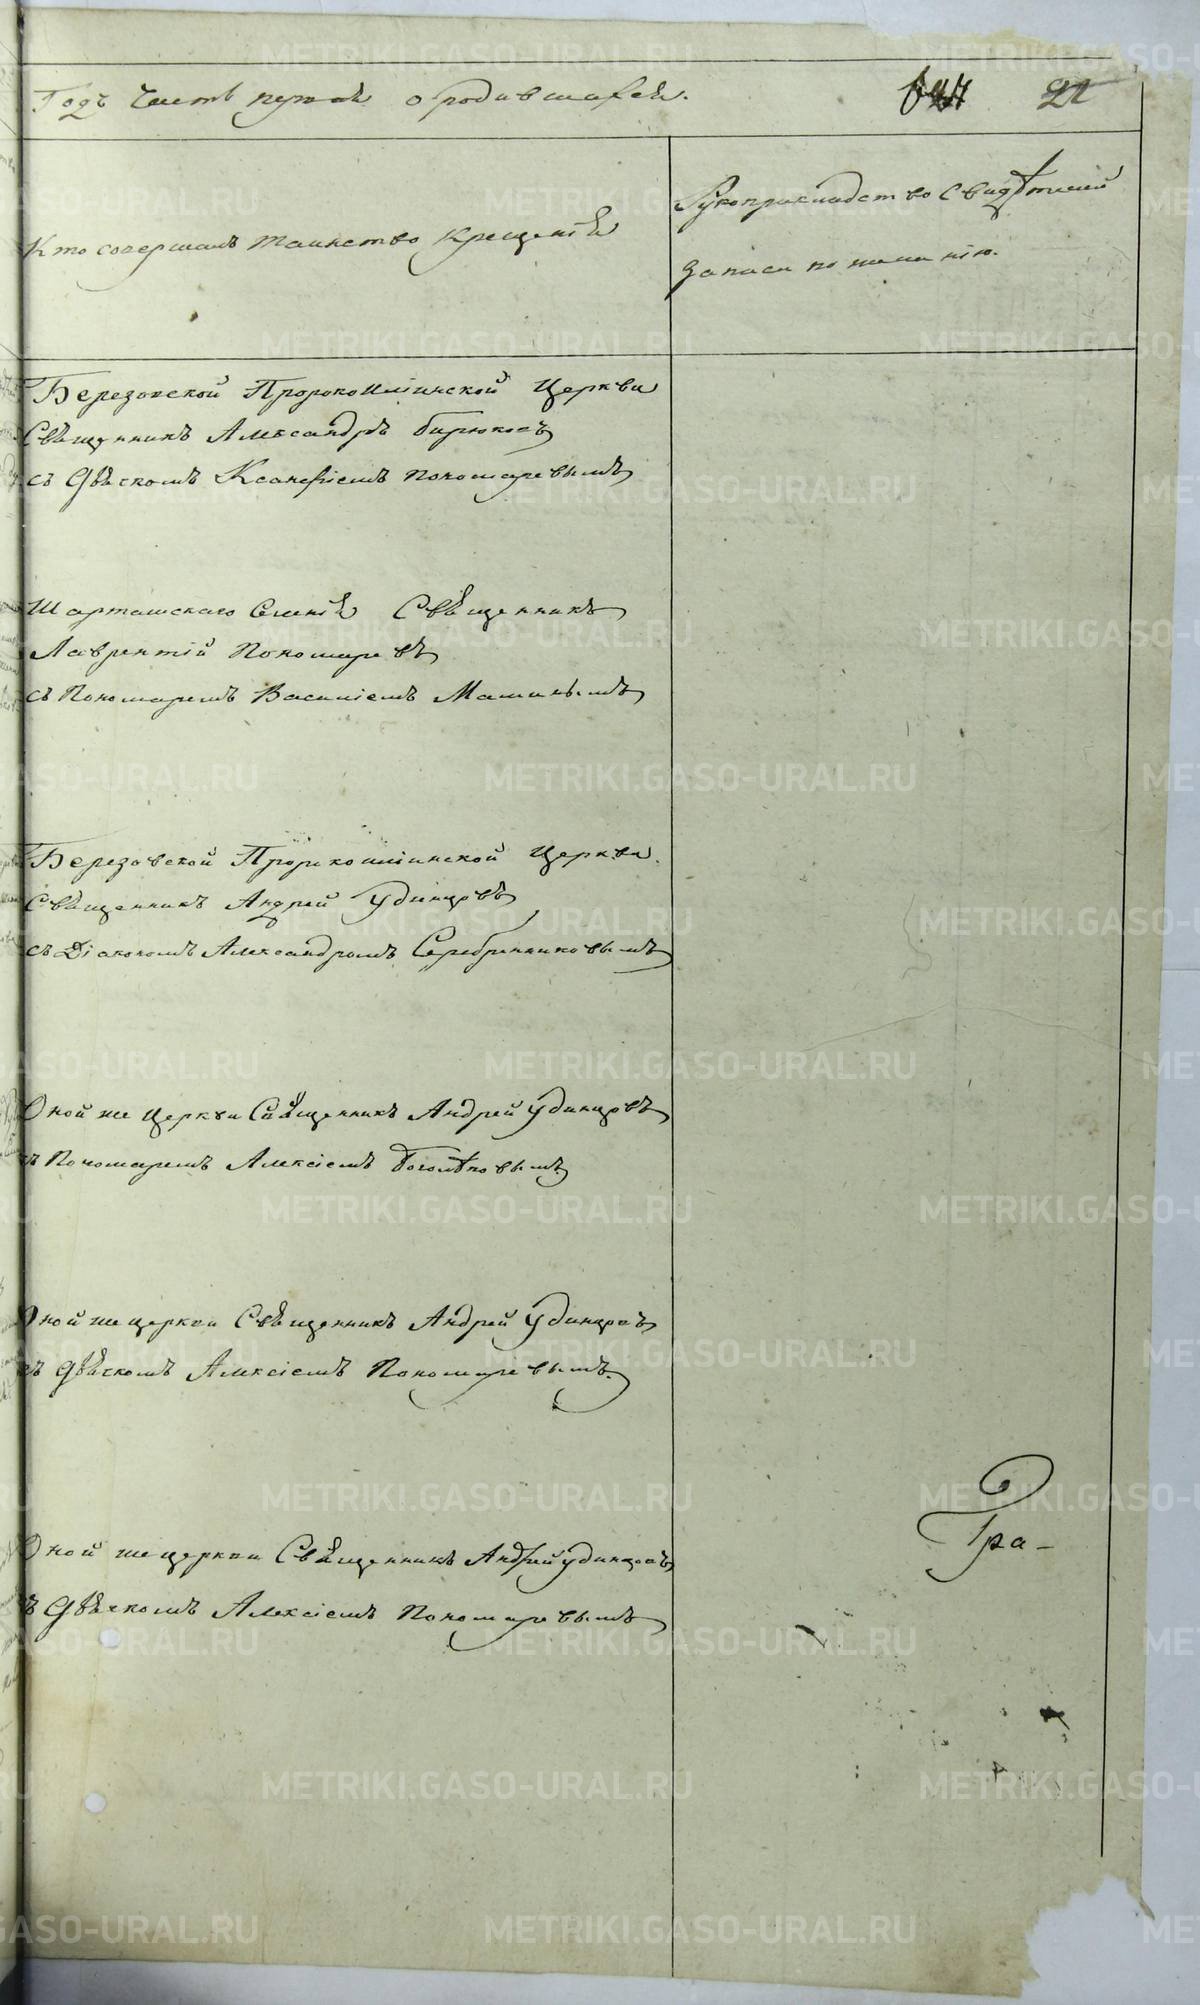 Годъ часть первая о родившихся.
22
Кто совершалъ таинство крещенія
Рукоприкладство свидѣтелей
записи по желанію.
Березовской Пророкоилiинской Церкви
Священникъ Александръ Бирюковъ
съ Дьячкомъ Ксанфіемъ Пономаревымъ
Шарташскаго Селенія Священникъ
Лаврентій Пономаревъ
съ Пономаремъ Василіемъ Маминымъ
Березовской Пророкоиліинской Церкви
Священникъ Андрей Удинцовъ
съ Діакономъ Александромъ Серебренниковымъ
Оной же Церкви Священникъ Андрей Удинцовъ
съ Пономаремъ Алексіемъ Боголѣповымъ
Оной же церкви Священникъ Андрей Удинцовъ
съ Дьячкомъ Алексіемъ Пономаревымъ.
Оной же церкви Священникъ Андрей Удинцовъ
съ Дьячкомъ Алексіемъ Пономаревымъ
Гра-
METRIKI.GASO-URAL.RU